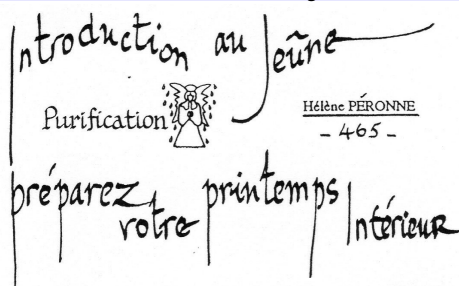 Introduction au Jeûne
Purification
Hélène PÉRONNE
- 465 -
préparez votre printemps Intérieur